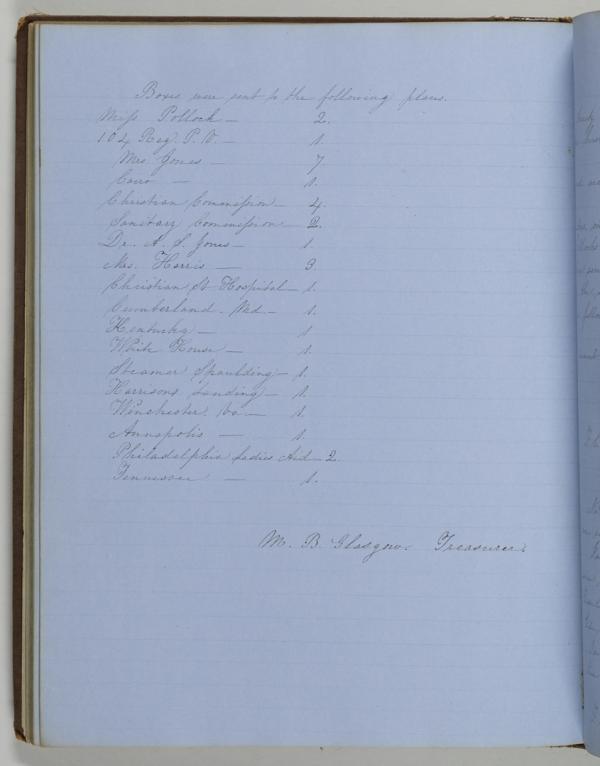 Boxes were sent to the following places.
Miss Pollock — 2.
104 Reg. P. V. — 1.
Mrs Jones — 7
Cairo — 1.
Christian Commission — 4.
Sanitary Commission — 2.
Dr. A. S. Jones — 1.
Mrs. Harris — 3
Christian St Hospital — 1.
Cumberland. Md. — 1.
Kentucky — 1
White House — 1.
Steamer Spaulding — 1.
Harrisons Landing — 1.
Winchester. Va — 1.
Annapolis — 1.
Philadelphia Ladies Aid — 2.
Tennessee — 1.
M. B. Glasgow. Treasurer.